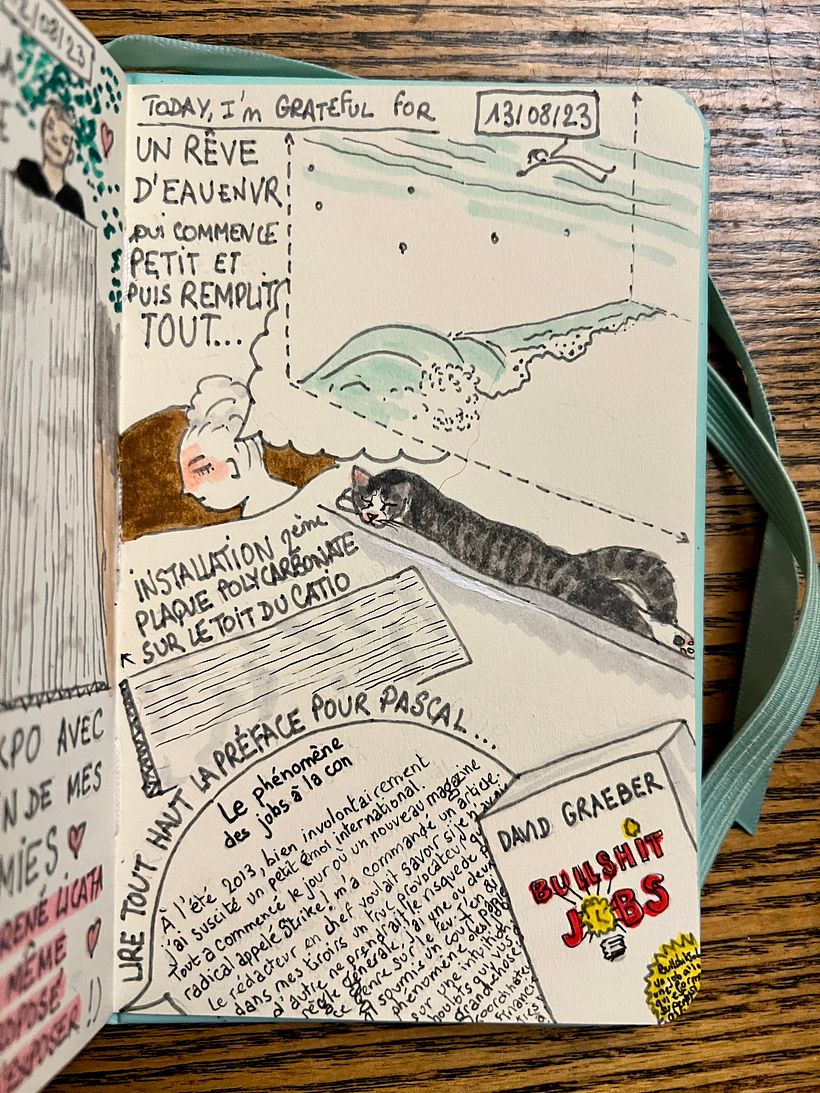 2/08/23
TODAY, I'm GRATEFUL FOR
13/08/23
UN RÊVE
D'EAU ENVR
QUI COMMENCE
PETIT ET
PUIS REMPLIT
TOUT...
INSTALLATION 2ème
PLAQUE POLYCARBONATE
SUR LE TOIT DU CATIO
LIRE TOUT HAUT LA PRÉFACE POUR PASCAL...
Le phénomène
des jobs à la con
À l'été 2013, bien involontairement
j'ai suscité un petit émoi international.
Tout a commencé le jour où un nouveau magazine
radical appelé Strike! m'a commandé un article.
Le rédacteur en chef voulait savoir si je
dans mes tiroirs un truc provocateur
d'autre ne prendrait le risque de
règle générale, j'ai une ou deux
ce genre sur le feu
soumis un court
phénomène des
sur une intuition
boulots qui
grand-chose
coordinateurs
DAVID GRAEBER
BULLSHIT
JOBS
XPO AVEC
N DE MES
MIES
RENÉ LICATA
MÊME
EXPOSER !)